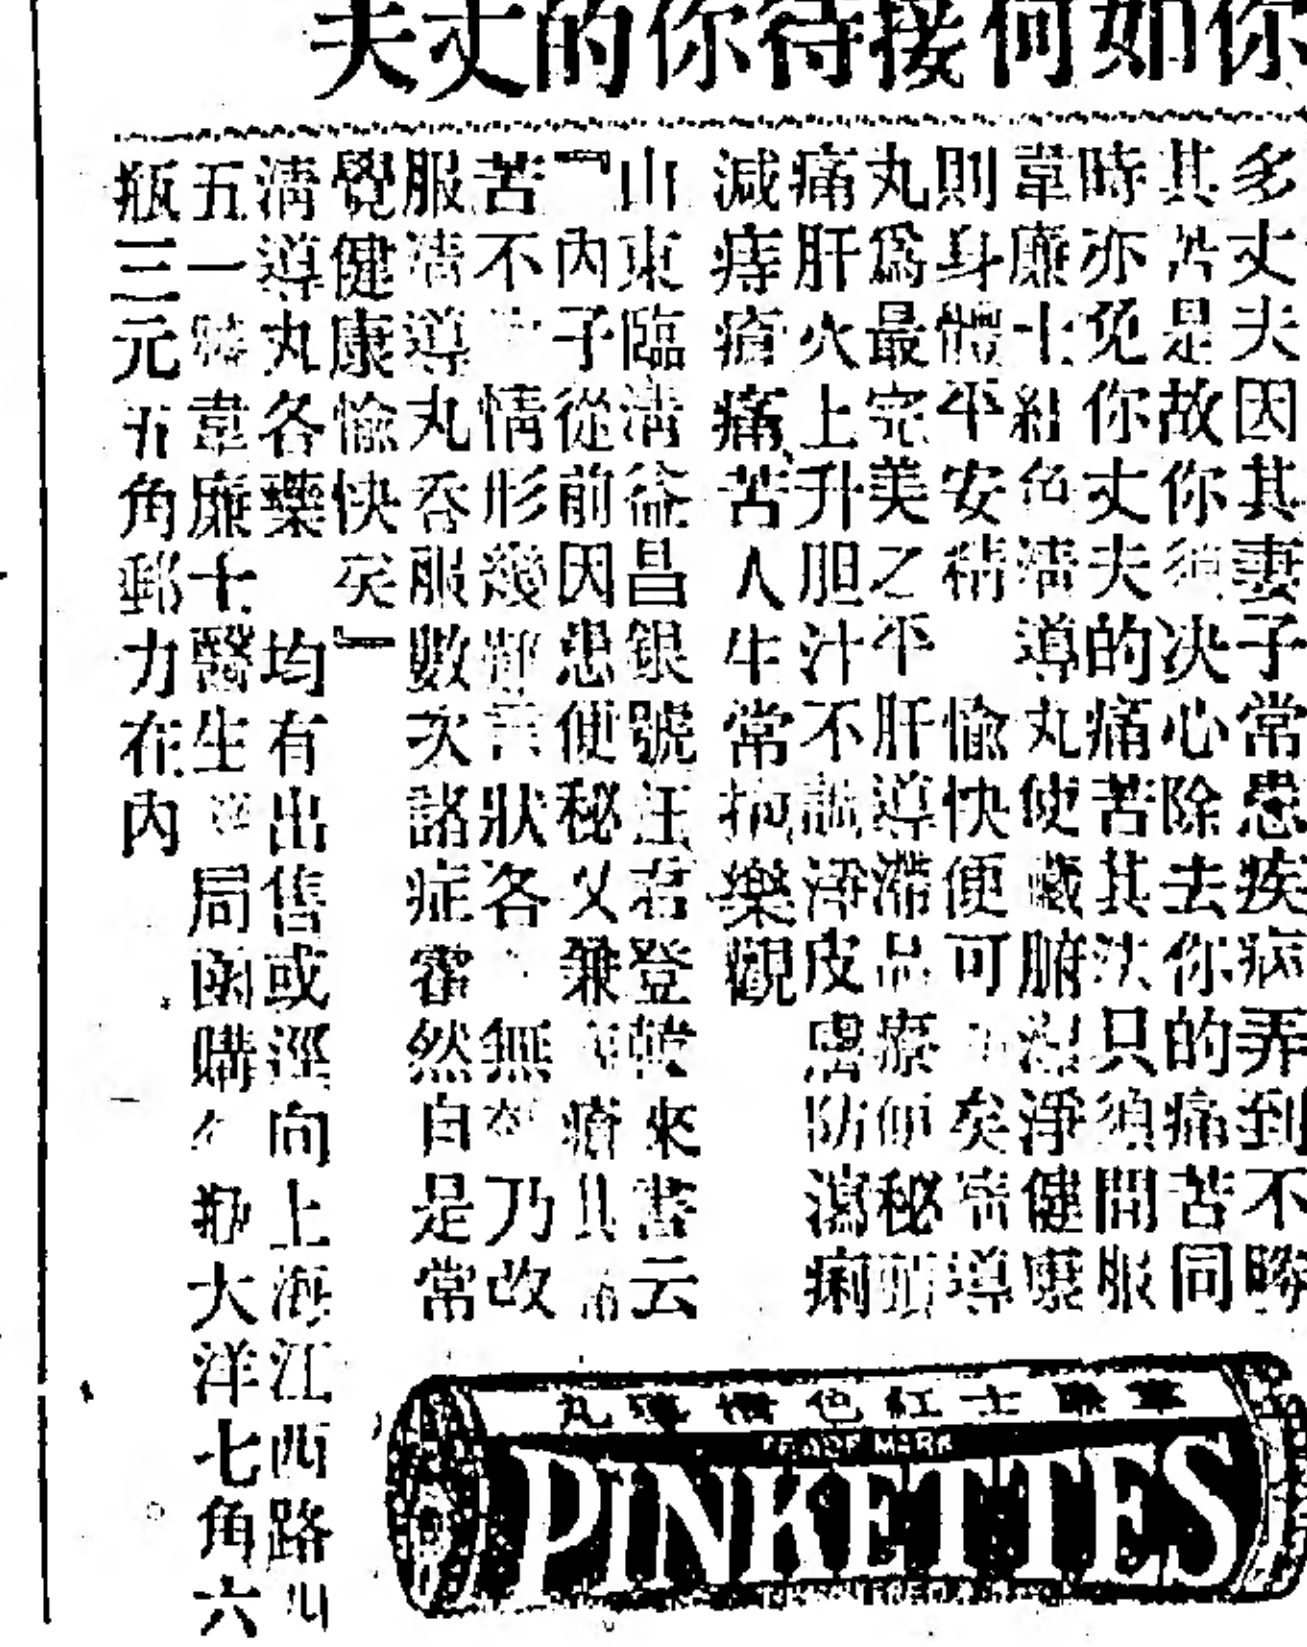 你如何接待你的丈夫
多丈夫因其妻子常患疾病弄到不勝
其苦是故你須決心除去你的痛苦同
時亦免你丈夫的痛苦其法只須間服
韋廉士紅色清導丸使臟腑潔淨健康
則身體平安精愉快便可矣清導
丸爲最完美之平肝導滯品療便秘頭
痛肝火上升胆汁不調淨皮膚防瀉痢
減痔瘡痛苦人生常抱樂觀
山東臨清益昌銀號汪君登乾來書云
『內子從前因患便秘又兼瘡其
苦不情形幾難言狀各無乃改
服清導丸吞服數次諸症霍然自是常
覺健康愉快矣』
清導丸各藥均有出售或逕向上海江西路
五一號韋廉士醫生藥局函購每瓶大洋七角六
瓶三元五角郵力在內
韋廉士紅色清導丸
PROOF MARK
PINKETTES